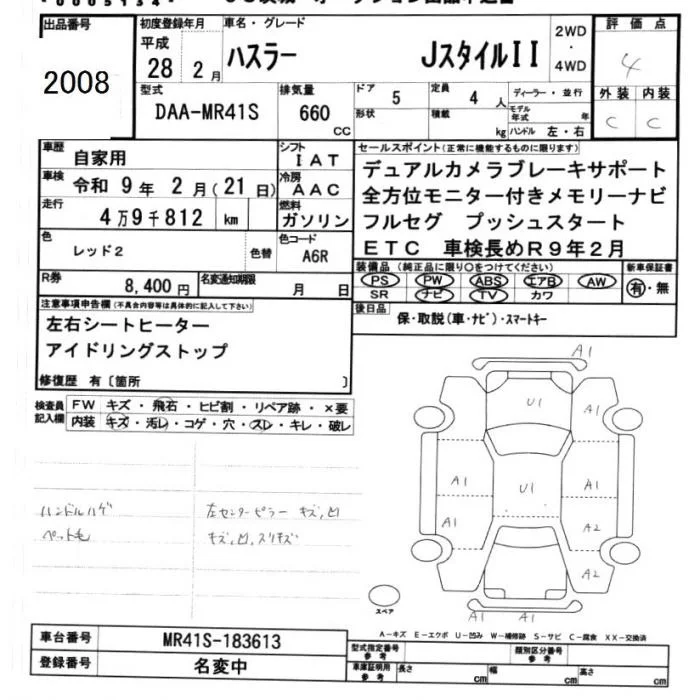 出品番号 初度登録年月 車名・グレード 2WD・4WD 評価点
2008 平成 28 2月 ハスラー JスタイルII 4
型式 排気量 ドア 5 定員 4人 ディーラー・並行 外装 内装
DAA-MR41S 660 CC 形状 積載 kg モデル年式 年 C C
ハンドル 左・右
車歴 自家用 シフト IAT セールスポイント(正常に機能するものに限ります)
車検 令和 9年 2月(21日) 冷房 AAC デュアルカメラブレーキサポート
走行 4万9千812 km 燃料 ガソリン 全方位モニター付きメモリーナビ
フルセグ プッシュスタート
色 レッド2 色替 色コード A6R ETC 車検長めR9年2月
R券 8,400円 名変通知期限 月 日 装備品(純正品に限り○をつけてください) 新車保証書
PS PW ABS エアB AW 有・無
SR ナビ TV カワ
注意事項申告欄(不具合内容等は具体的に記入して下さい) 後日品 保・取説(車・ナビ)・スマートキー
左右シートヒーター
アイドリングストップ
修復歴 有〔箇所 〕
検査員記入欄 FW キズ・飛石・ヒビ割・リペア跡・×要
内装 キズ・汚レ・コゲ・穴・スレ・キレ・破レ
A1
U1 A1
A1 U1 A1
A1 A2
A2
A1 A1
ハンドルハゲ 左センターピラー キズ,凹
ペット毛 キズ,凹,スリキズ
スペア
A-キズ E-エクボ U-凹み W-補修跡 S-サビ C-腐食 XX-交換済
車台番号 MR41S-183613 型式指定番号 参考 類別区分番号 参考
登録番号 名変中 車庫証明用 参考 長さ cm 幅 cm 高さ cm